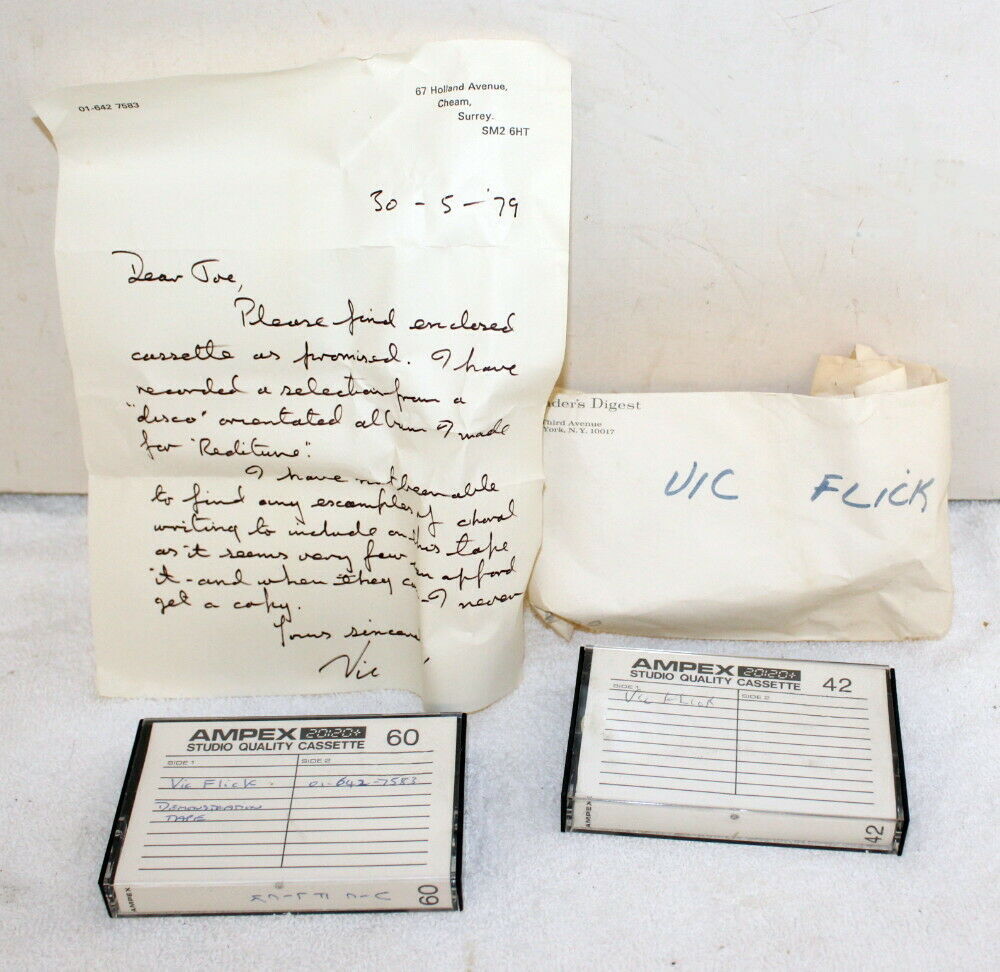 01-642 7583
67 Holland Avenue,
Cheam,
Surrey.
SM2 6HT
30 - 5 - '79
Dear Joe,
Please find enclosed
cassette as promised. I have
recorded a selection from a
"disco" orientated album I made
for "Reditune".
I have not been able
to find any examples of choral
writing to include on this tape
as it seems very few can afford
it - and when they - I never
get a copy.
Yours
Vic
ader's Digest
Third Avenue
York, N.Y. 10017
VIC FLICK
AMPEX 20:20+
STUDIO QUALITY CASSETTE 42
SIDE 1 SIDE 2
VIC FLICK
AMPEX 42
AMPEX 20:20+
STUDIO QUALITY CASSETTE 60
SIDE 1 SIDE 2
Vic Flick. 01-642-7583
DEMONSTRATION
TAPE
AMPEX VIC FLICK 60